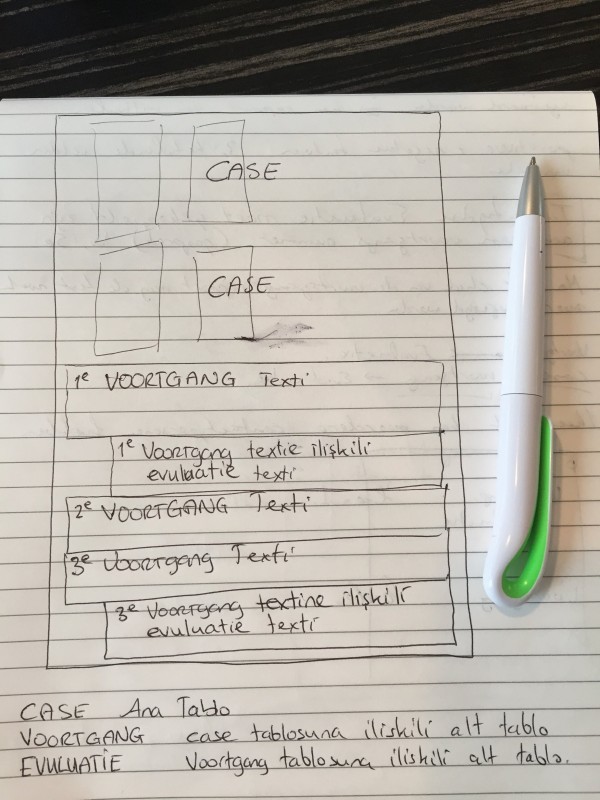 CASE
CASE
1e VOORTGANG Texti
1e Voortgang textie ilişkili
evuluatie texti
2e VOORTGANG Texti
3e Voortgang Texti
3e Voortgang textine ilişkili
evuluatie texti
CASE Ana Tablo
VOORTGANG case tablosuna ilişkili alt tablo
EVULUATIE Voortgang tablosuna ilişkili alt tablo.